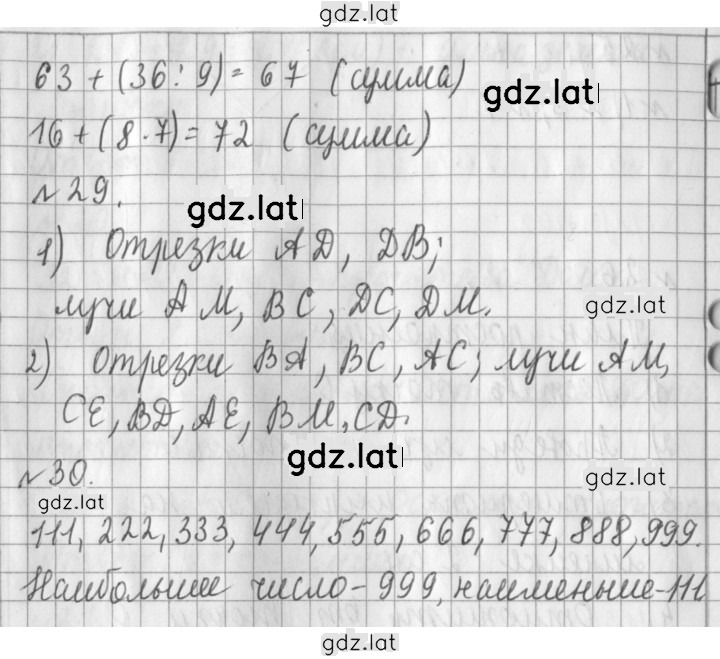 gdz.lat
63 + (36 : 9) = 67 (сумма)
gdz.lat
16 + (8 · 7) = 72 (сумма)
№ 29.
gdz.lat
1) Отрезки АD, DB;
лучи АМ, ВС, DC, DM.
gdz.lat
2) Отрезки ВА, ВС, АС; лучи АМ,
СЕ, BD, АЕ, ВМ, CD.
gdz.lat
№ 30.
gdz.lat
gdz.lat
111, 222, 333, 444, 555, 666, 777, 888, 999.
Наибольшее число - 999, наименьшее - 111
gdz.lat